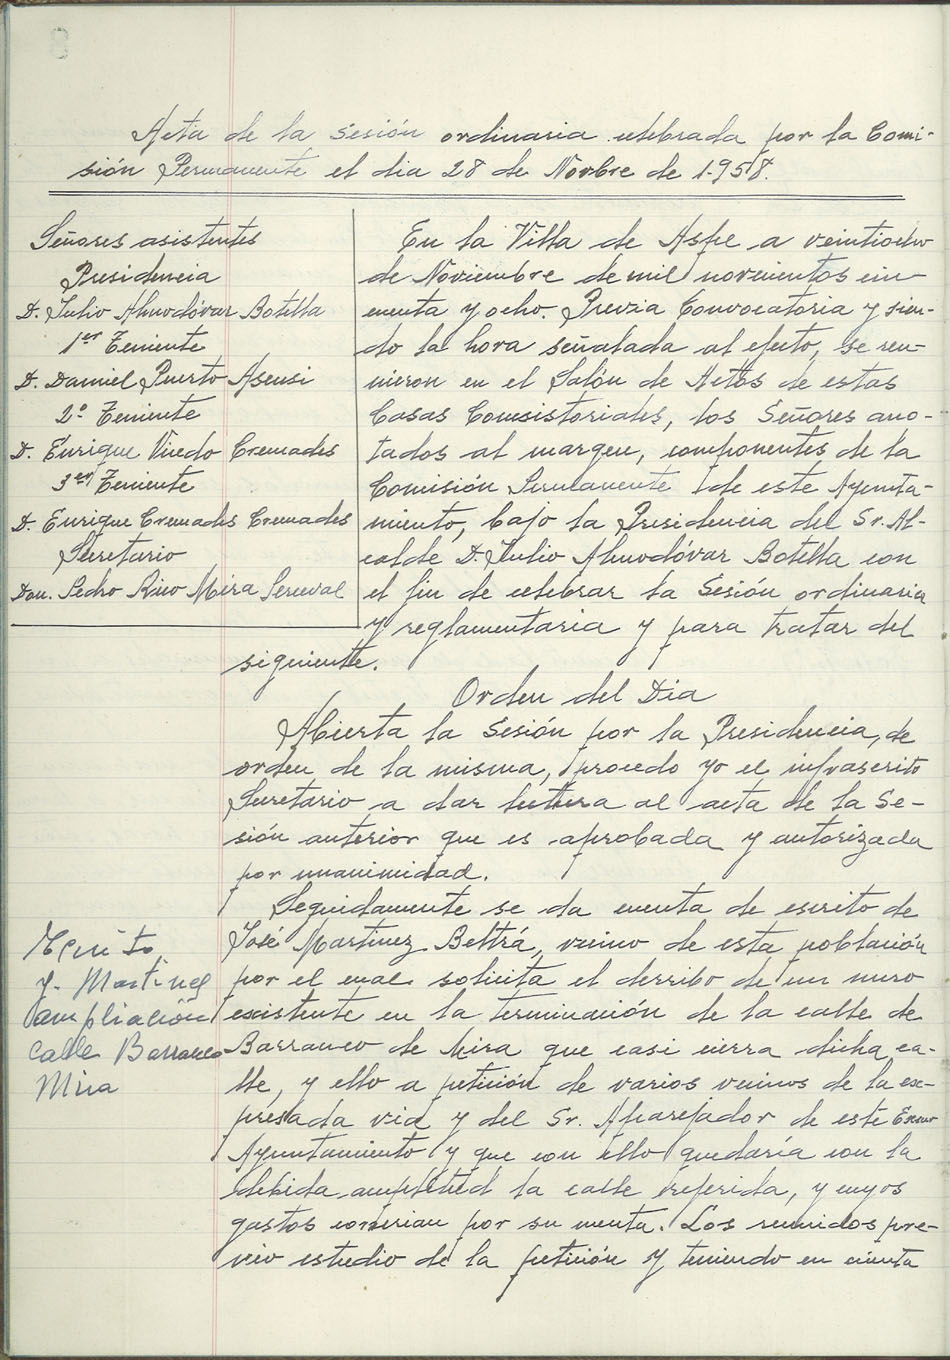 8
Acta de la Sesión ordinaria celebrada por la Comi-
sión Permanente el dia 28 de Novbre de 1.958.
Señores asistentes
Presidencia
D. Julio Almodóvar Botella
1er Teniente
D. Daniel Puerto Asensi
2º Teniente
D. Enrique Vicedo Cremades
3er Teniente
D. Enrique Cremades Cremades
Secretario
Don. Pedro Rico Mira Perceval
En la Villa de Aspe a veintiocho
de Noviembre de mil novecientos cin-
cuenta y ocho. Previa Convocatoria y sien-
do la hora señalada al efecto, se reu-
nieron en el Salón de Actos de estas
Casas Consistoriales, los Señores ano-
tados al margen, componentes de la
Comisión Permanente de este Ayunta-
miento, bajo la Presidencia del Sr. Al-
calde D. Julio Almodóvar Botella con
el fin de celebrar la Sesión ordinaria
y reglamentaria y para tratar del
siguiente.
Orden del Dia
Abierta la Sesión por la Presidencia, de
orden de la misma, procedo yo el infrascrito
Secretario a dar lectura al acta de la Se-
sión anterior que es aprobada y autorizada
por unanimidad.
Seguidamente se da cuenta de escrito de
José Martinez Beltrá, vecino de esta población
por el cual solicita el derribo de un muro
existente en la terminación de la calle de
Barranco de Mira que casi cierra dicha ca-
lle, y ello a petición de varios vecinos de la ex-
presada via y del Sr. Aparejador de este Excmo
Ayuntamiento y que con ello quedaría con la
debida amplitud la calle referida, y cuyos
gastos correrian por su cuenta. Los reunidos pre-
vio estudio de la petición y teniendo en cuenta
Escrito
J. Martinez
ampliación
calle Barranco
Mira